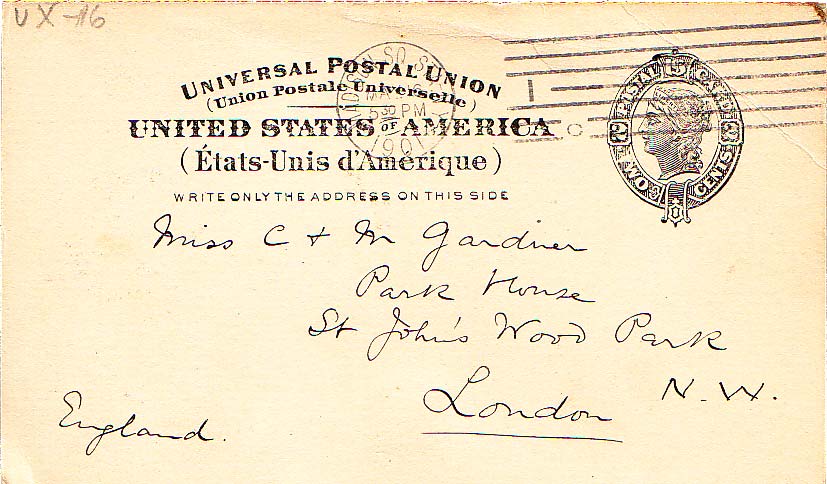 UX-16
UNIVERSAL POSTAL UNION
(Union Postale Universelle)
UNITED STATES OF AMERICA
(États-Unis d'Amérique)
WRITE ONLY THE ADDRESS ON THIS SIDE
MADISON SQ. STA.
530 PM
1901
1
POSTAL CARD
TWO CENTS
Miss C & M Gardiner
Park House
St John's Wood Park
London N.W.
England.